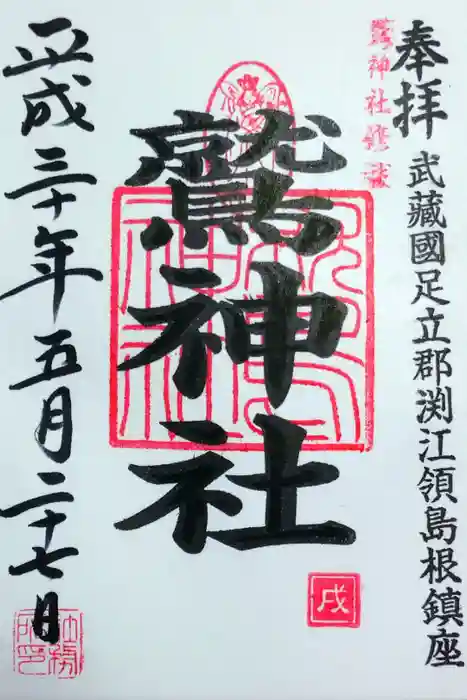 奉拝
武藏國足立郡渕江領島根鎮座
鷲神社
戌
平成三十年五月二十七日
社務所印